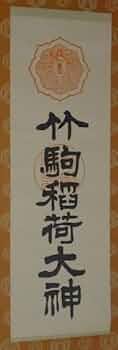 竹駒稲荷大神